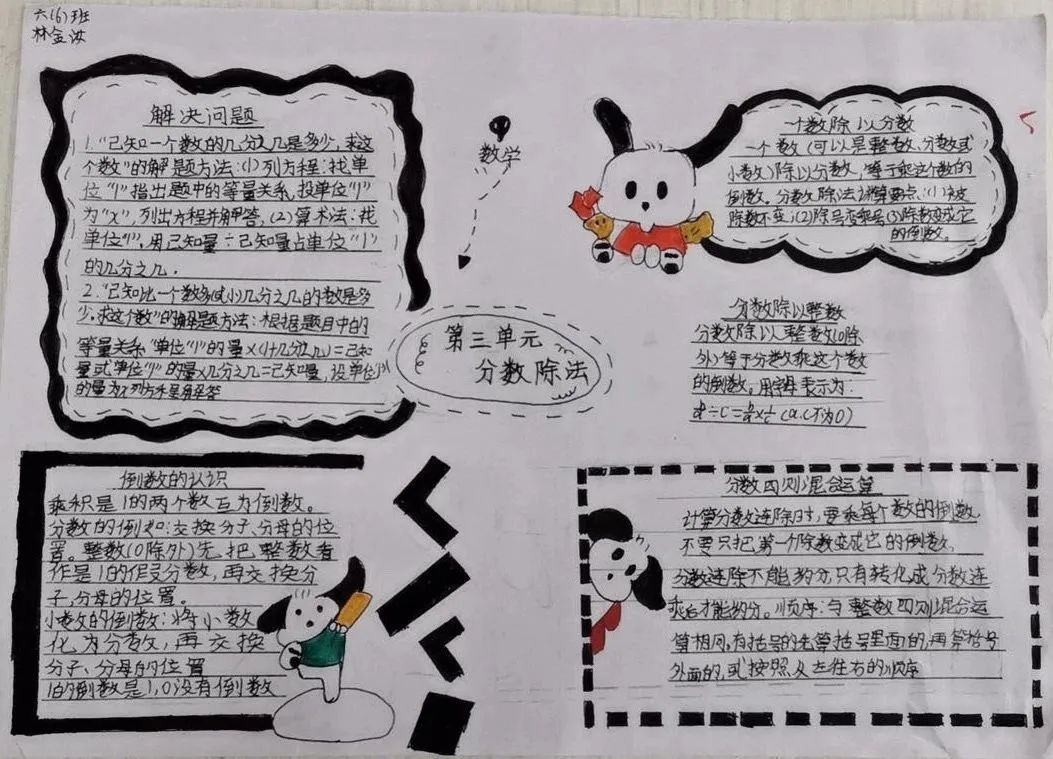 六(6)班
林金汝
解决问题
1."已知一个数的几分之几是多少,求这
个数"的解题方法:(1)列方程:找单
位"1"指出题中的等量关系,设单位"1"
为"x",列出方程并解答,(2)算术法:找
单位"1",用已知量÷已知量占单位"1"
的几分之几.
2."已知比一个数多(或小)几分之几的数是多
少,求这个数"的解题方法:根据题目中的
等量关系"单位"1"的量×(1+几分之几)=已知
量或单位"1"的量×几分之几=已知量,设单位"1"
的量为x列方程解答
数学
第三单元
分数除法
一个数除以分数
一个数(可以是整数、分数或
小数)除以分数,等于乘这个数的
倒数。分数除法计算要点:(1)被
除数不变;(2)除号变乘号(3)除数变成它
的倒数。
分数除以整数
分数除以整数(0除
外)等于分数乘这个数
的倒数,用字母表示为:
÷c=×(a.c不为0)
倒数的认识
乘积是1的两个数互为倒数。
分数的倒数:交换分子、分母的位
置。整数(0除外)先把整数看
作是1的假分数,再交换分
子,分母的位置。
小数的倒数:将小数
化为分数,再交换
分子、分母的位置
1的倒数是1,0没有倒数
分数四则混合运算
计算分数连除时,要乘每个数的倒数
不要只把第一个除数变成它的倒数,
分数连除不能约分,只有转化成分数连
乘后才能约分。顺序:与整数四则混合运
算相同,有括号的先算括号里面的,再算括号
外面的,或按照从左往右的顺序